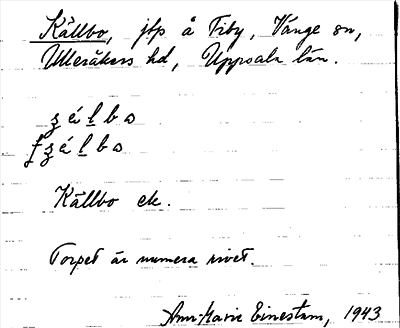 Källbo, jfp å Fiby, Vänge sn,
Ulleråkers hd, Uppsala län.
ʒ é l b ω
f ʒ é l b ω
Källbo ek.
Torpet är numera rivet.
Ann-Marie Einestam, 1943